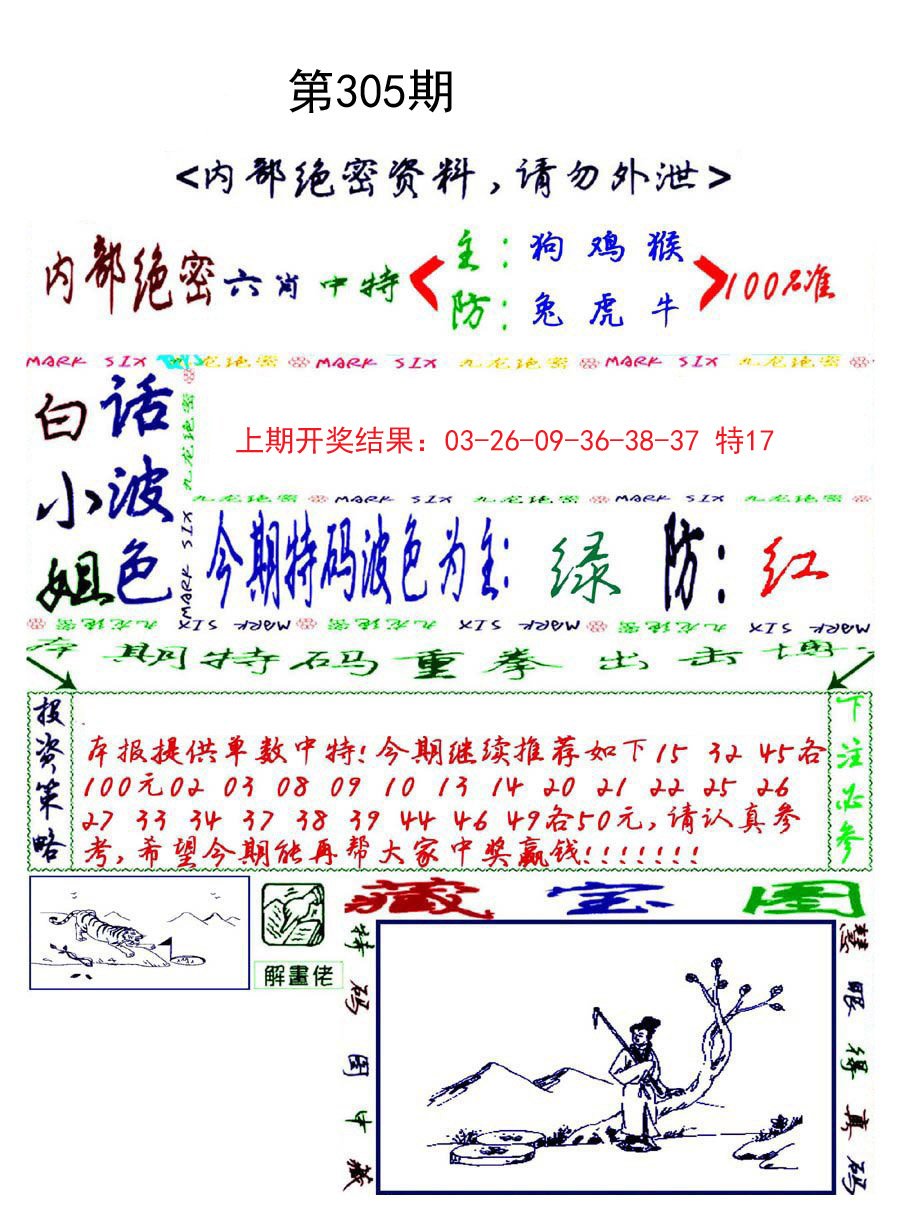 第305期
<内部绝密资料,请勿外泄>
内部绝密六肖中特
主:狗鸡猴
防:兔虎牛
100%准
MARK SIX 九龙绝密 MARK SIX 九龙绝密 MARK SIX 九龙绝密
白话
小波
姐色
九龙绝密
MARK SIX
上期开奖结果：03-26-09-36-38-37 特17
九龙绝密 MARK SIX 九龙绝密 MARK SIX 九龙绝密
今期特码波色为主:绿 防:红
九龙绝密 MARK SIX 九龙绝密 MARK SIX 九龙绝密 MARK SIX
本期特码重拳出击博
投资策略
本报提供单数中特!今期继续推荐如下15 32 45各
100元02 03 08 09 10 13 14 20 21 22 25 26
27 33 34 37 38 39 44 46 49各50元,请认真参
考,希望今期能再帮大家中奖赢钱!!!!!!!
下注必参
解畫佬
藏宝图
特码图中藏
慧眼得真码